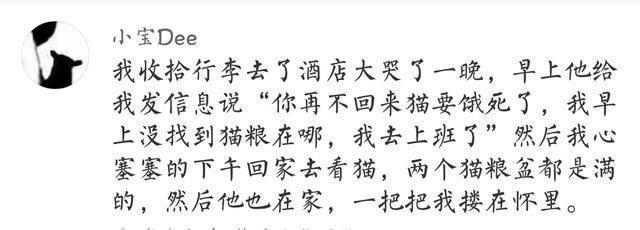 小宝Dee
我收拾行李去了酒店大哭了一晚，早上他给
我发信息说“你再不回来猫要饿死了，我早
上没找到猫粮在哪，我去上班了”然后我心
塞塞的下午回家去看猫，两个猫粮盆都是满
的，然后他也在家，一把把我搂在怀里。